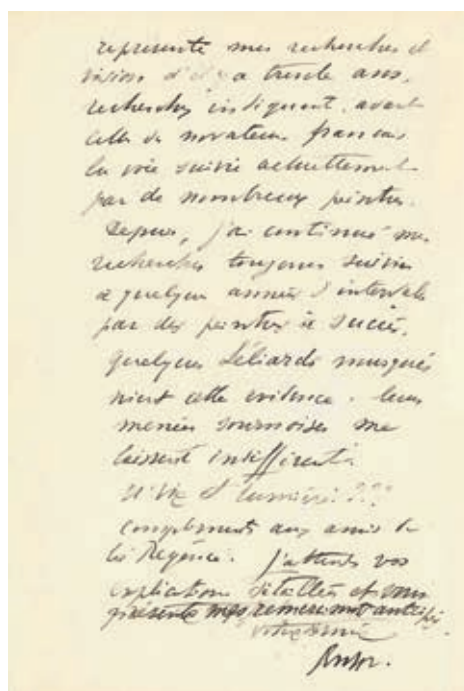 représente mes recherches et
visions d'il y a trente ans,
recherches indiquant, avant
celles de novateurs français
la voie suivie actuellement
par de nombreux peintres.
Depuis, j'ai continué mes
recherches toujours suivies
à quelques années d'intervalle
par des peintres à succès.
Quelques musqués
nient cette évidence. leurs
menées sournoises me
laissent indifférent.
et lumière ???
compliments aux amis de
la Régence. J'attends vos
explications détaillées et vous
présente mes remerciements anticipés.
votre
Ensor.